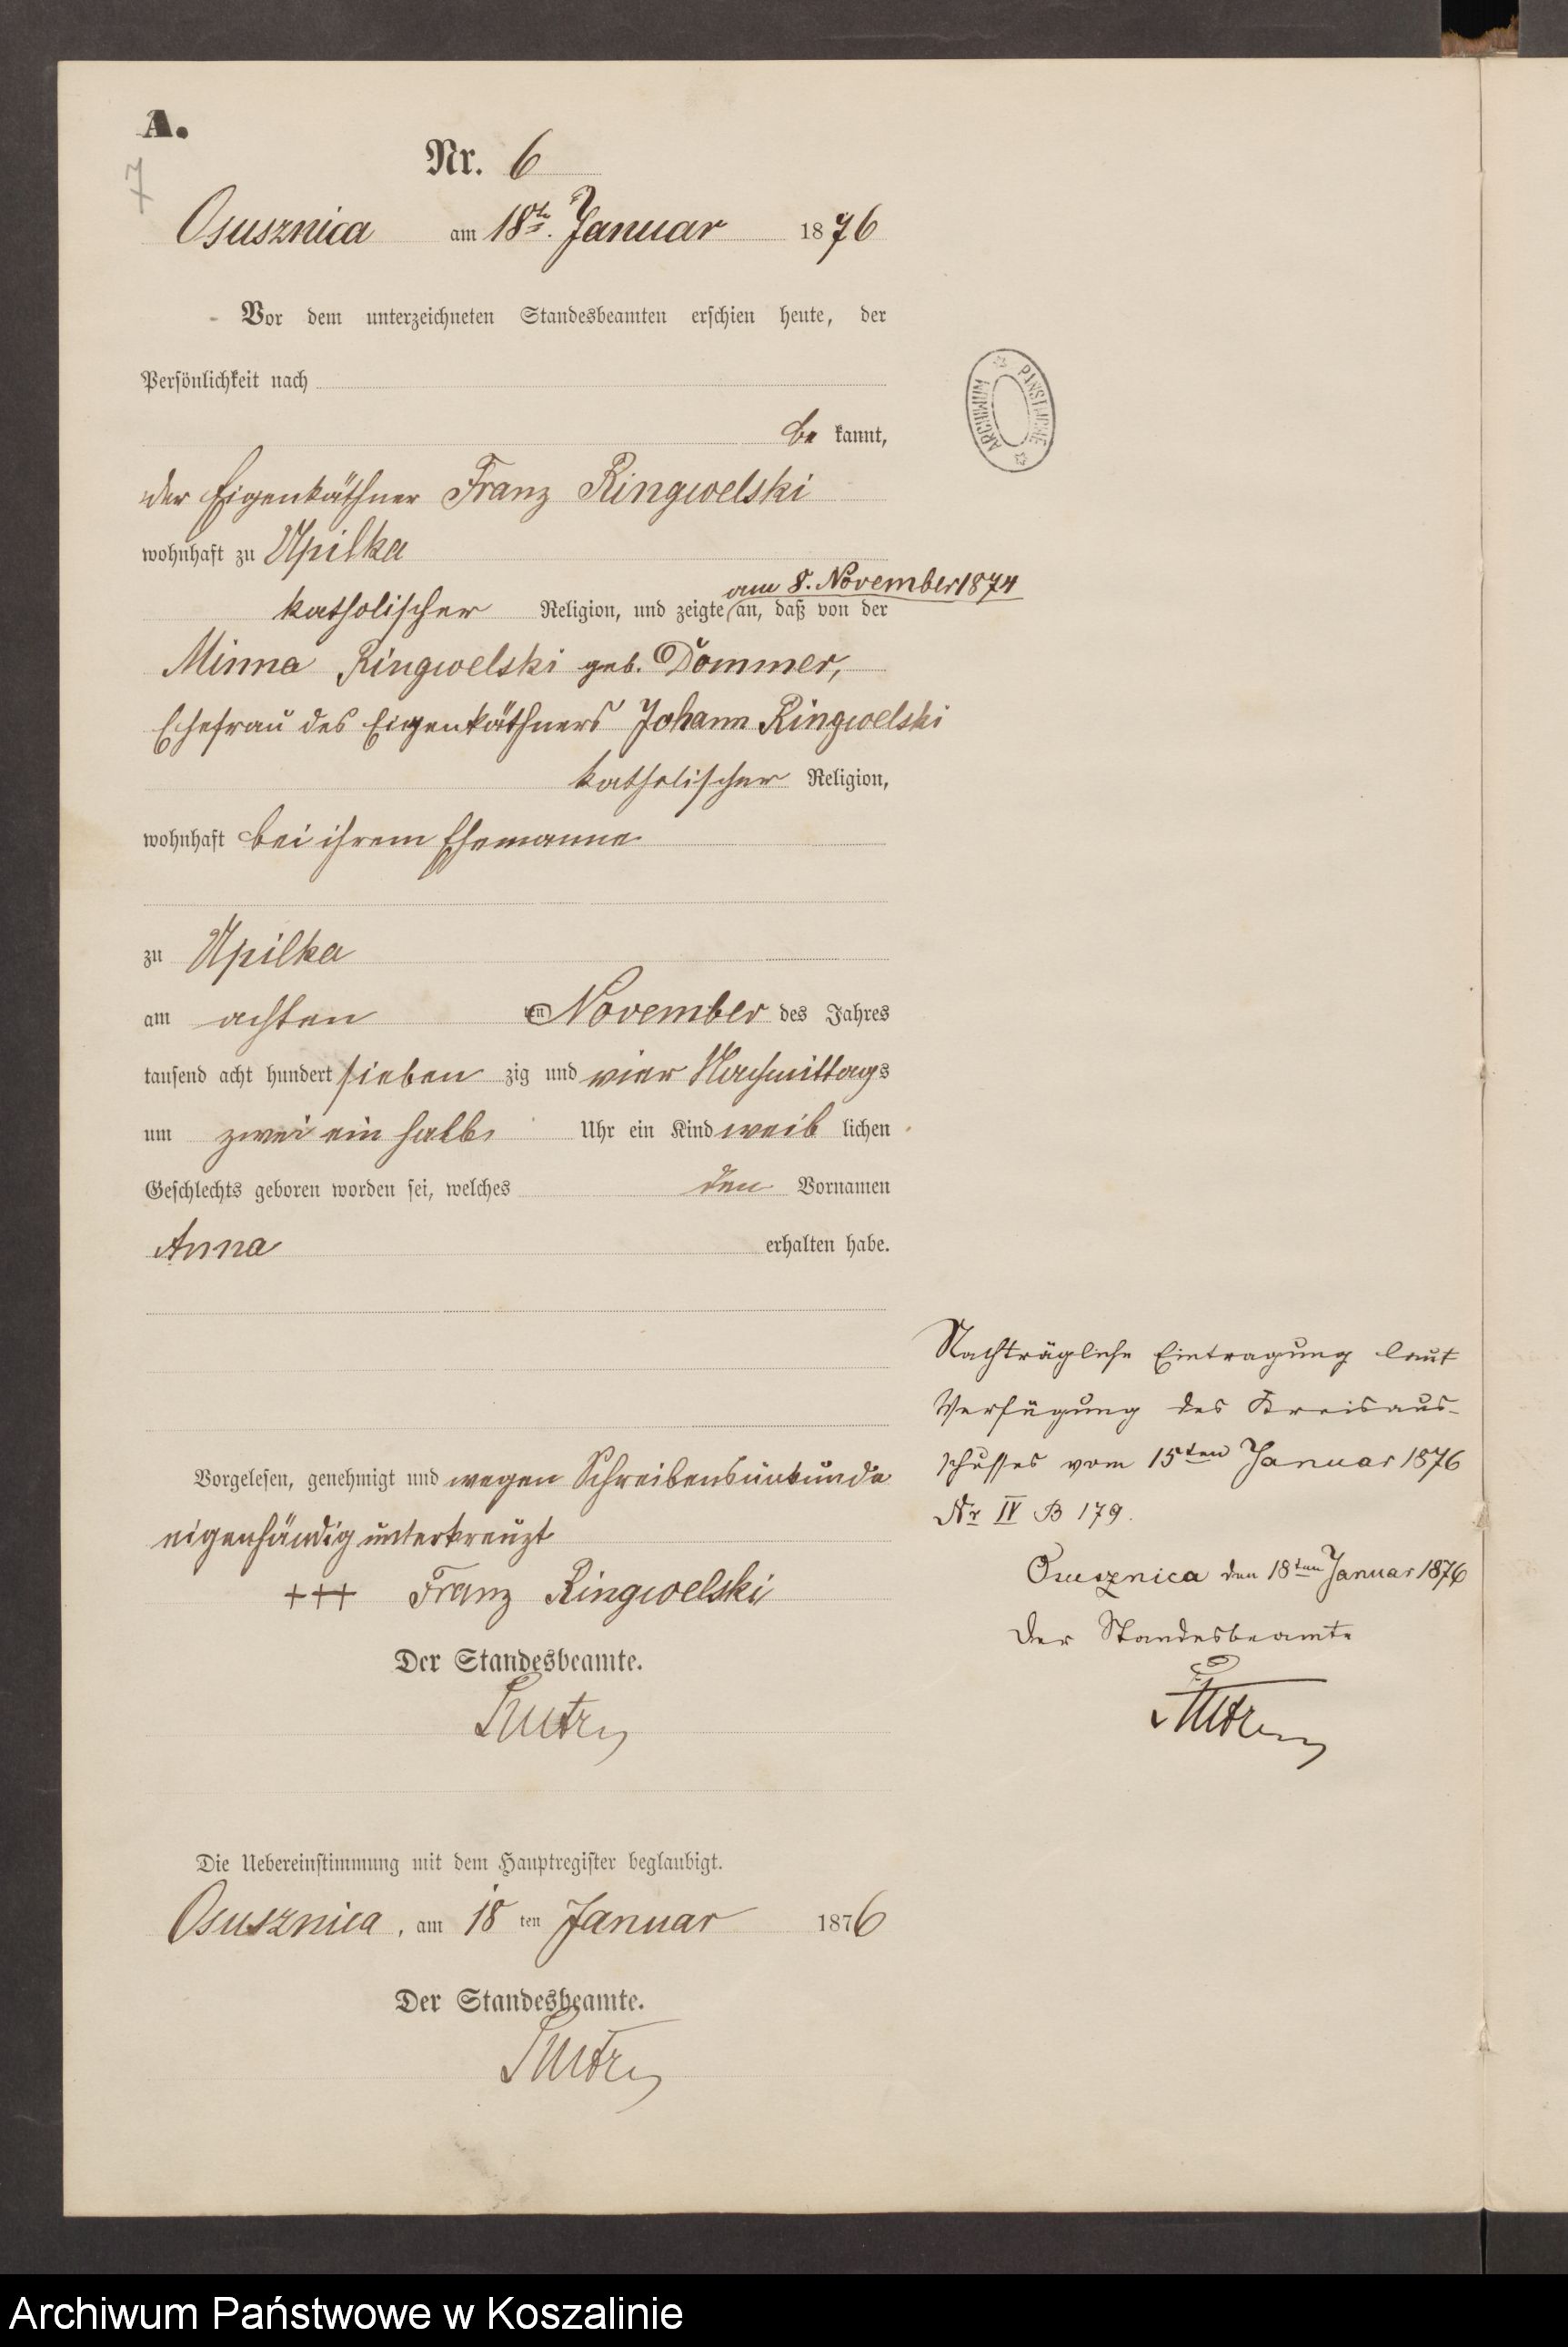 A.
7
Nr. 6
Osusznica am 18ten Januar 1876
Vor dem unterzeichneten Standesbeamten erschien heute, der
Persönlichkeit nach
be kannt,
der Eigenkäthner Franz Ringwelski
wohnhaft zu Upilka
am 8. November 1874
katholischer Religion, und zeigte an, daß von der
Minna Ringwelski geb. Dommer,
Ehefrau des Eigenkäthners Johann Ringwelski
katholischer Religion,
wohnhaft bei ihrem Ehemanne
zu Upilka
am achten ten November des Jahres
tausend acht hundert sieben zig und vier Nachmittags
um zwei ein halb Uhr ein Kind weib lichen
Geschlechts geboren worden sei, welches den Vornamen
Anna erhalten habe.
Vorgelesen, genehmigt und wegen Schreibensunkunde
eigenhändig unterkreuzt
+++ Franz Ringwelski
Der Standesbeamte.
Die Uebereinstimmung mit dem Hauptregister beglaubigt.
Osusznica, am 18 ten Januar 1876
Der Standesbeamte.
ARCHIWUM PAŃSTWOWE
Nachträgliche Eintragung laut
Verfügung des Kreisaus-
schusses vom 15ten Januar 1876
Nr IV B 179.
Osusznica den 18ten Januar 1876
Der Standesbeamte
Archiwum Państwowe w Koszalinie